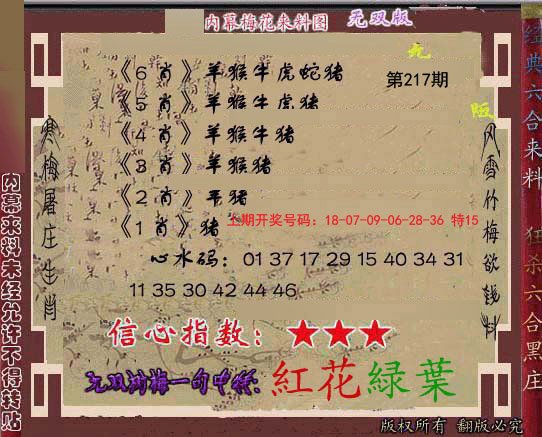 内幕梅花来料图 无双版
《6肖》羊猴牛虎蛇猪
第217期
《5肖》羊猴牛虎猪
《4肖》羊猴牛猪
《3肖》羊猴猪
《2肖》羊猪
《1肖》猪
上期开奖号码：18-07-09-06-28-36 特15
心水码：01 37 17 29 15 40 34 31
11 35 30 42 44 46
信心指数：★★★
无双娴梅一句中特:紅花緑葉
版权所有 翻版必究
寒梅屠庄生肖
风雪竹梅欲钱料
内幕来料未经允许不得转贴
经典六合来料 狂杀六合黑庄